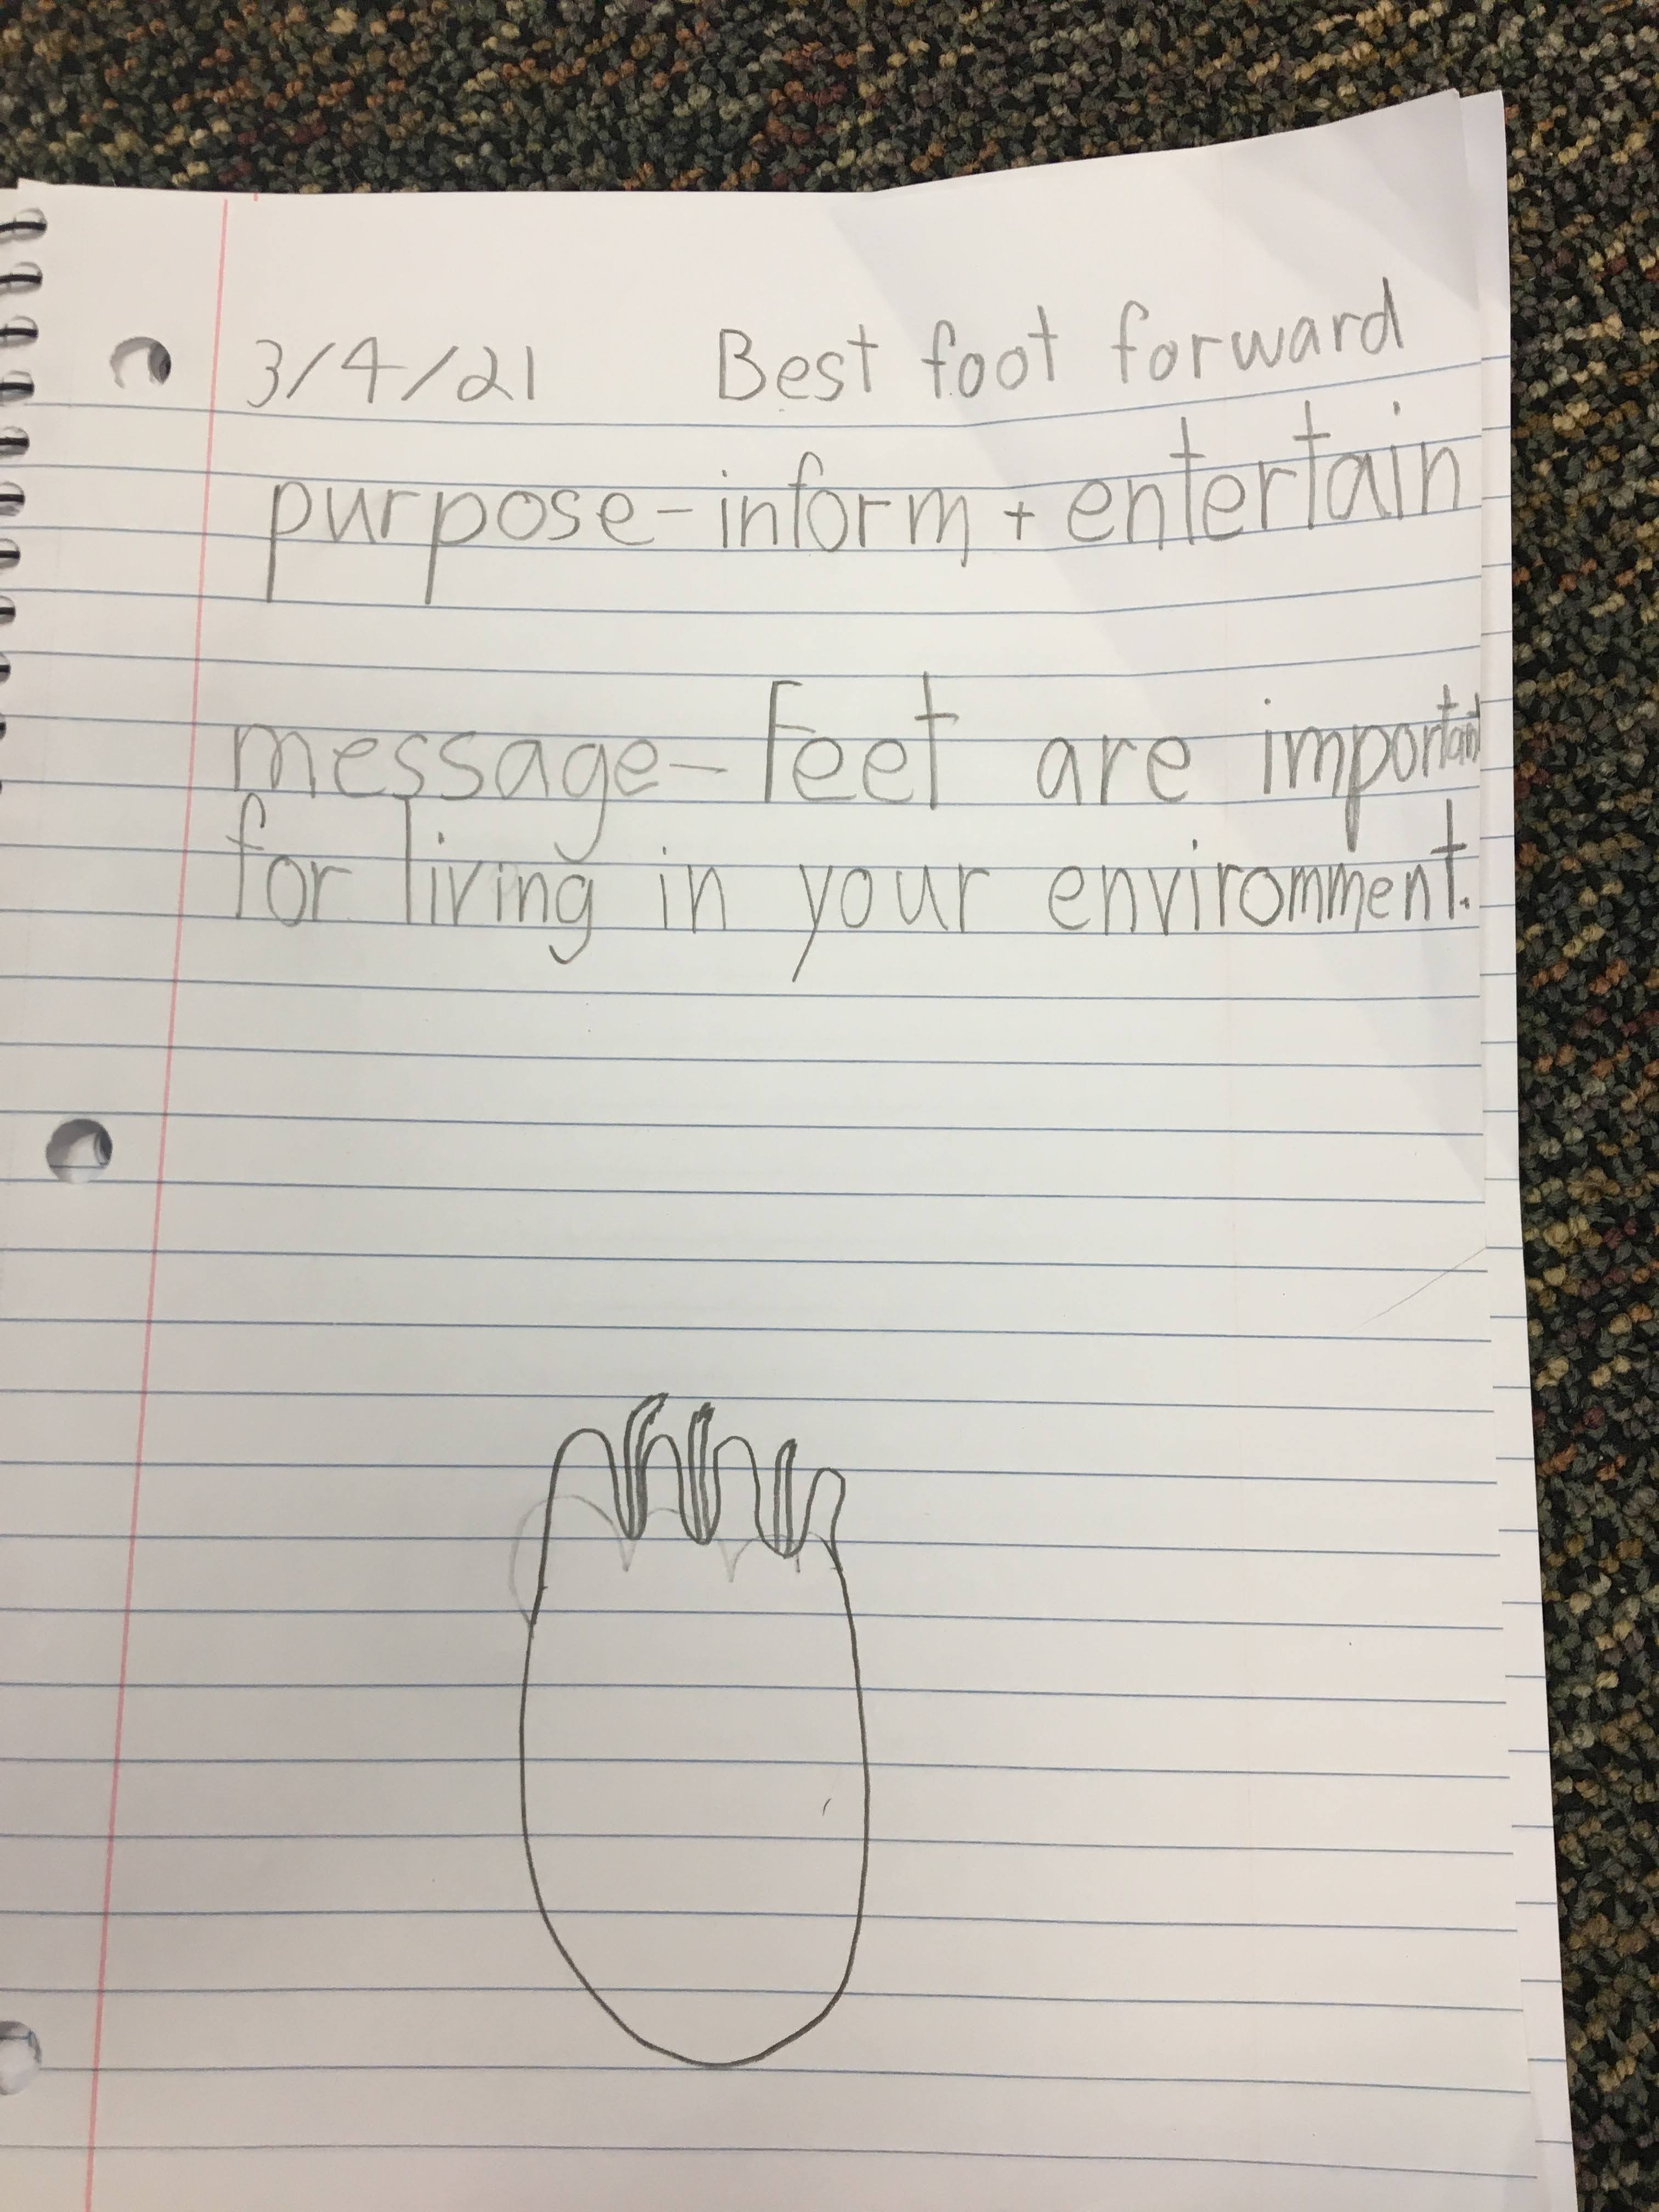 3/4/21 Best foot forward
purpose-inform + entertain
message-Feet are important
for living in your enviromment.